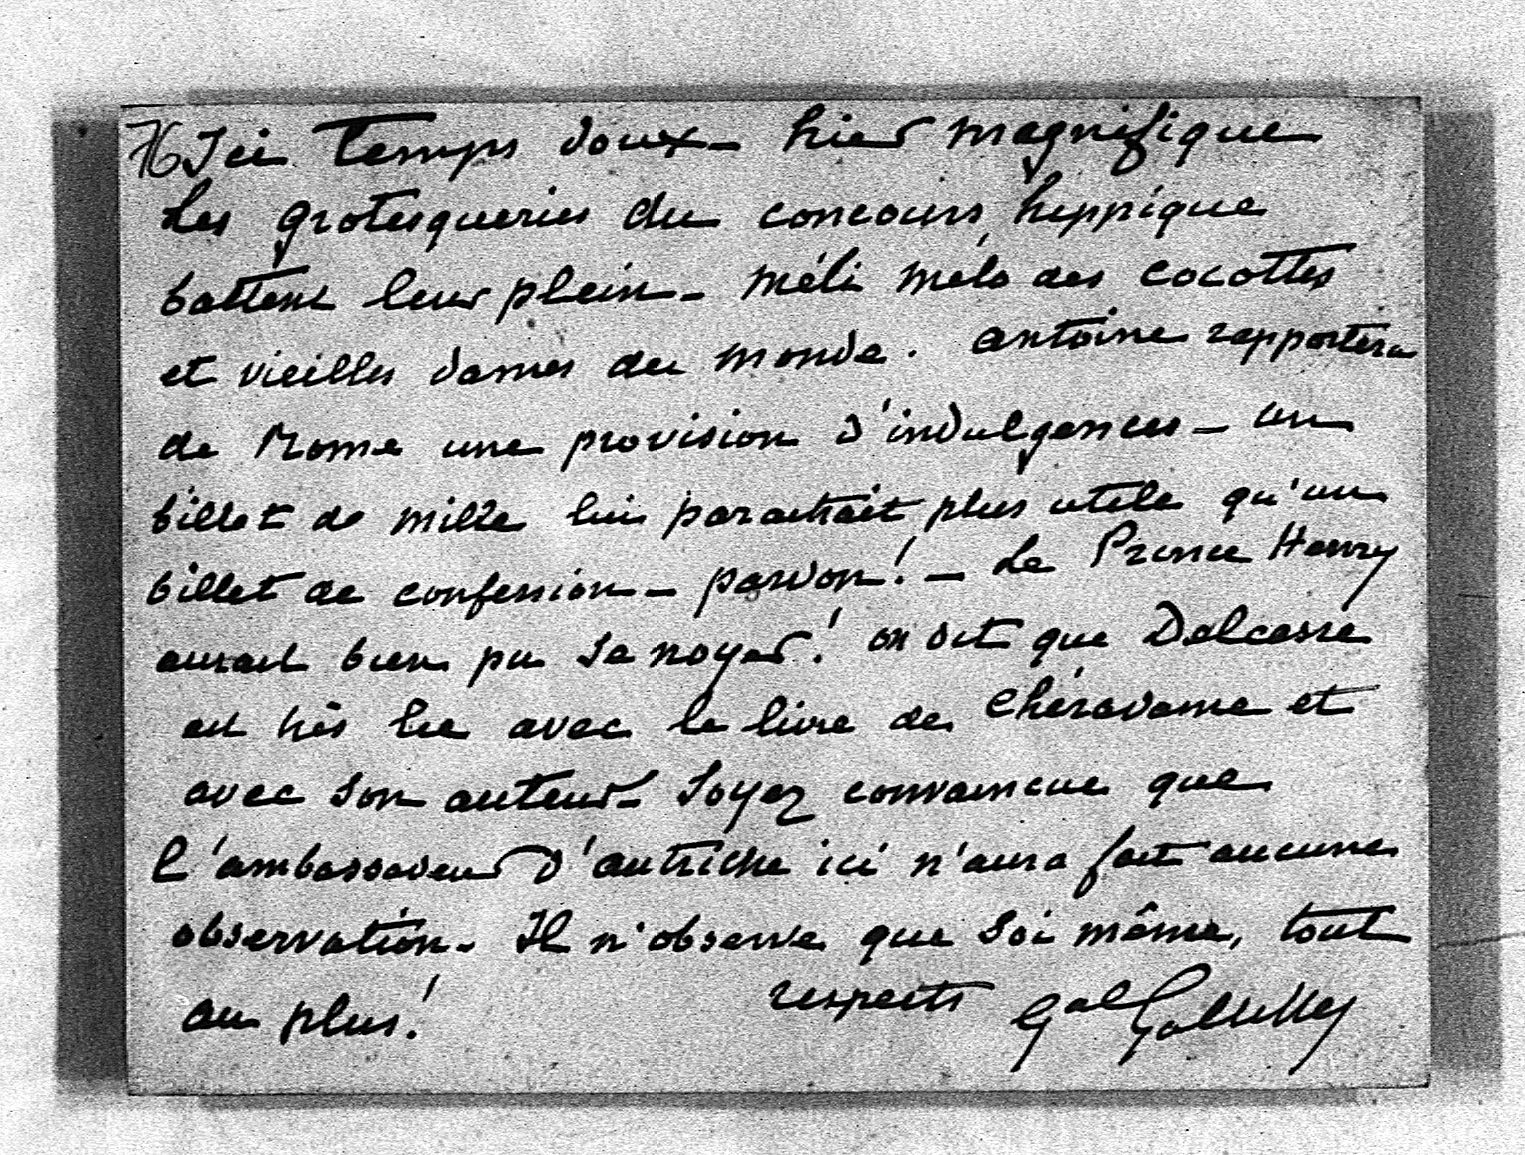 76 Ici temps doux - hier magnifique
Les grotesqueries du concours hippique
battent leur plein - méli mélo des cocottes
et vieilles dames du monde. Antoine rapportera
de Rome une provision d'indulgences - un
billet de mille lui paraitrait plus utile qu'un
billet de confession - pardon! - Le Prince Henry
aurait bien pu se noyer! on dit que Delcassé
est très lié avec le livre de Chéradame et
avec son auteur - Soyez convaincue que
l'ambassadeur d'autriche ici n'aura fait aucune
observation. Il n'observe que soi même, tout
au plus!
respects Gal Galliffet